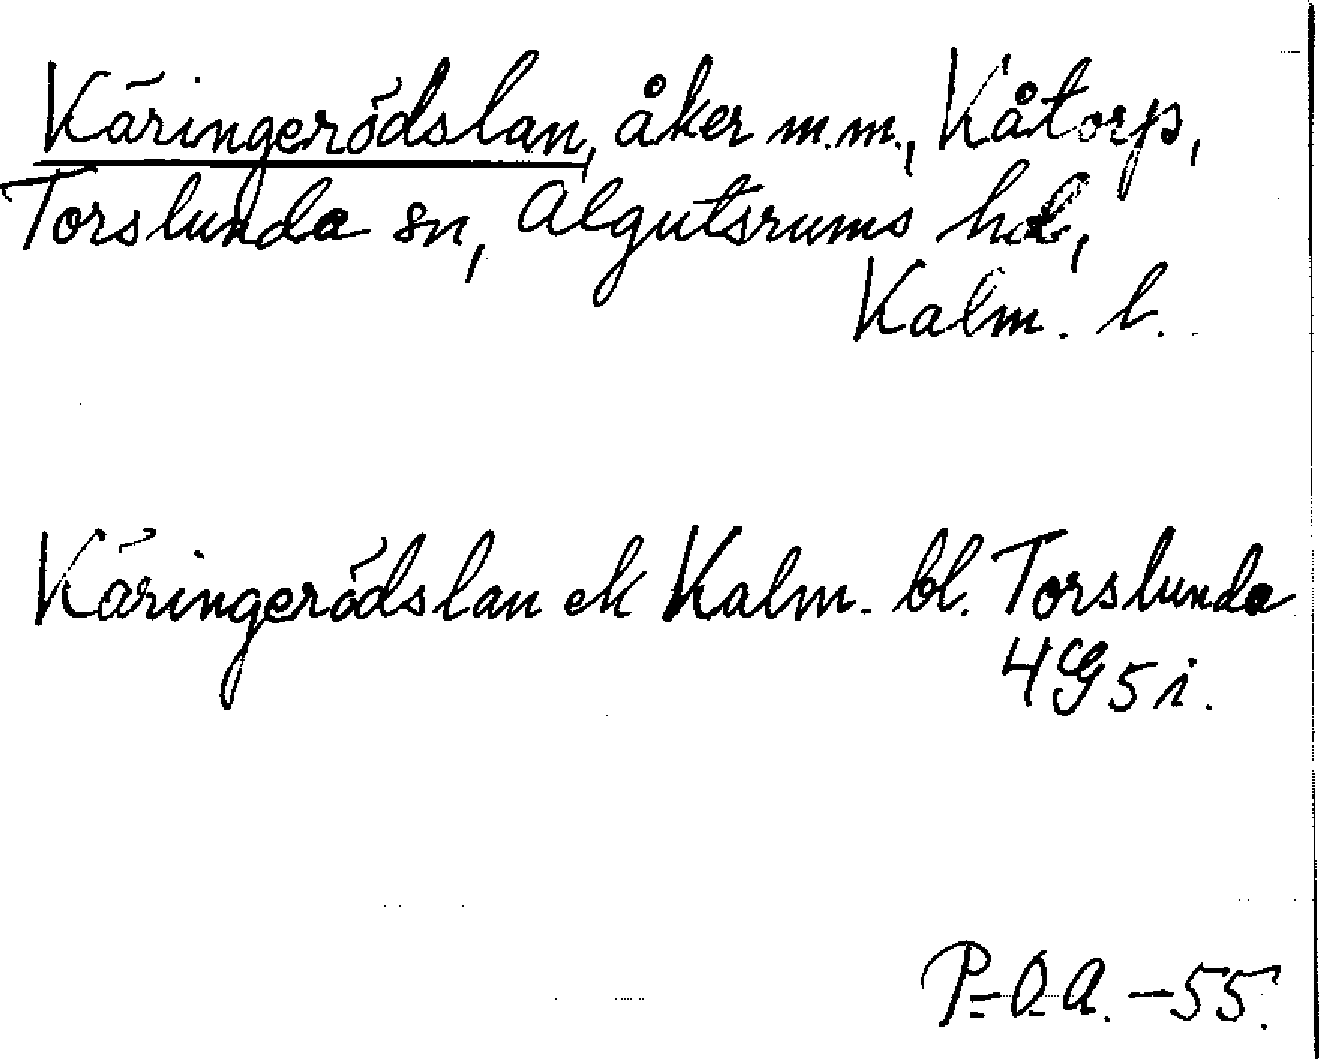 Käringerödslan, åker m.m., Kåtorp,
Torslunda sn, Algutsrums hd,
Kalm. l.
Käringerödslan ek Kalm. bl. Torslunda
4G5i.
P-O.A.-55.